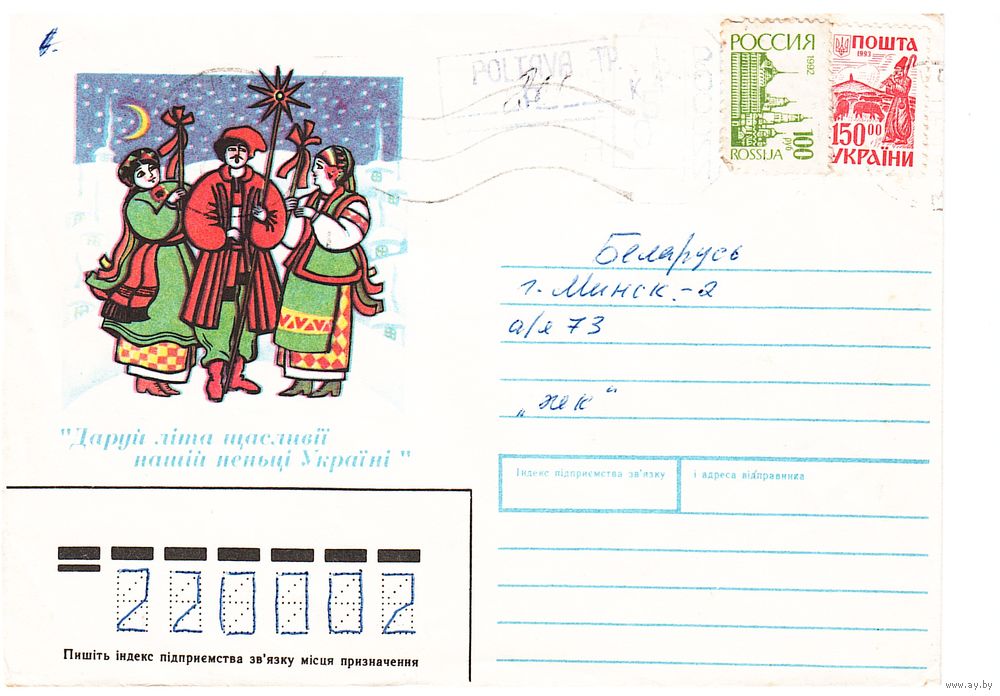 POLTAVA TP.
K
РОССИЯ
1992
100 руб
ROSSIJA
ПОШТА
1993
150.00
УКРАЇНИ
Беларусь
г. Минск-2
а/я 73
"Даруй літа щасливії
нашій неньці Україні"
Індекс підприємства зв'язку
і адреса відправника
220002
Пишіть індекс підприємства зв'язку місця призначення
www.ay.by